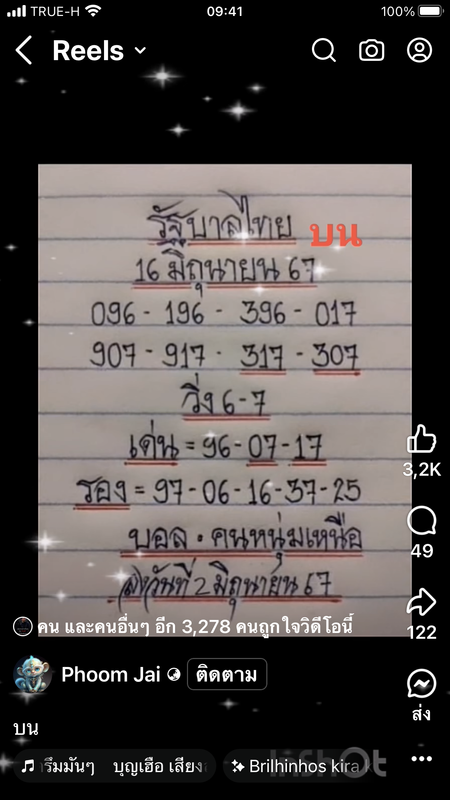 TRUE-H 09:41 100%
Reels
รัฐบาลไทย บน
16 มิถุนายน 67
096 - 196 - 396 - 017
907 - 917 - 317 - 307
วิ่ง 6-7
เด่น = 96-07-17
รอง = 97-06-16-37-25
บอล . คนหนุ่มเหนือ
วันที่ 2 มิถุนายน 67
3,2K
49
122
คน และคนอื่นๆ อีก 3,278 คนถูกใจวิดีโอนี้
Phoom Jai ติดตาม
ส่ง
บน
รึมมันๆ บุญเฮือ เสียง
Brilhinhos kira k